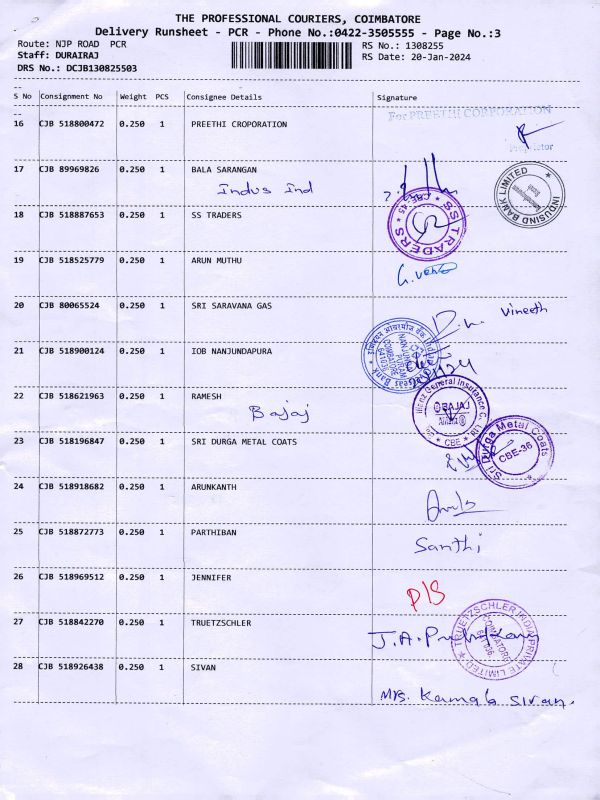 THE PROFESSIONAL COURIERS, COIMBATORE
Delivery Runsheet - PCR - Phone No.:0422-3505555 - Page No.:3
Route: NJP ROAD PCR RS No.: 1308255
Staff: DURAIRAJ RS Date: 20-Jan-2024
DRS No.: DCJB130825503
S No Consignment No Weight PCS Consignee Details Signature
For PREETHI CORPORATION
16 CJB 518800472 0.250 1 PREETHI CROPORATION
Proprietor
17 CJB 89969826 0.250 1 BALA SARANGAN
Indus Ind
INDUSIND BANK LIMITED
18 CJB 518887653 0.250 1 SS TRADERS
SS TRADERS CBE-45
19 CJB 518525779 0.250 1 ARUN MUTHU
20 CJB 80065524 0.250 1 SRI SARAVANA GAS
Vineeth
21 CJB 518900124 0.250 1 IOB NANJUNDAPURA
COIMBATORE
641036
22 CJB 518621963 0.250 1 RAMESH
Bajaj
BAJAJ
Allianz
CBE
23 CJB 518196847 0.250 1 SRI DURGA METAL COATS
Sri Durga Metal Coats
CBE-36
24 CJB 518918682 0.250 1 ARUNKANTH
25 CJB 518872773 0.250 1 PARTHIBAN
Santhi
26 CJB 518969512 0.250 1 JENNIFER
D/S
27 CJB 518842270 0.250 1 TRUETZSCHLER
TRUETZSCHLER INDIA PRIVATE LIMITED
COIMBATORE
28 CJB 518926438 0.250 1 SIVAN
Mrs. Kamala Sivan.